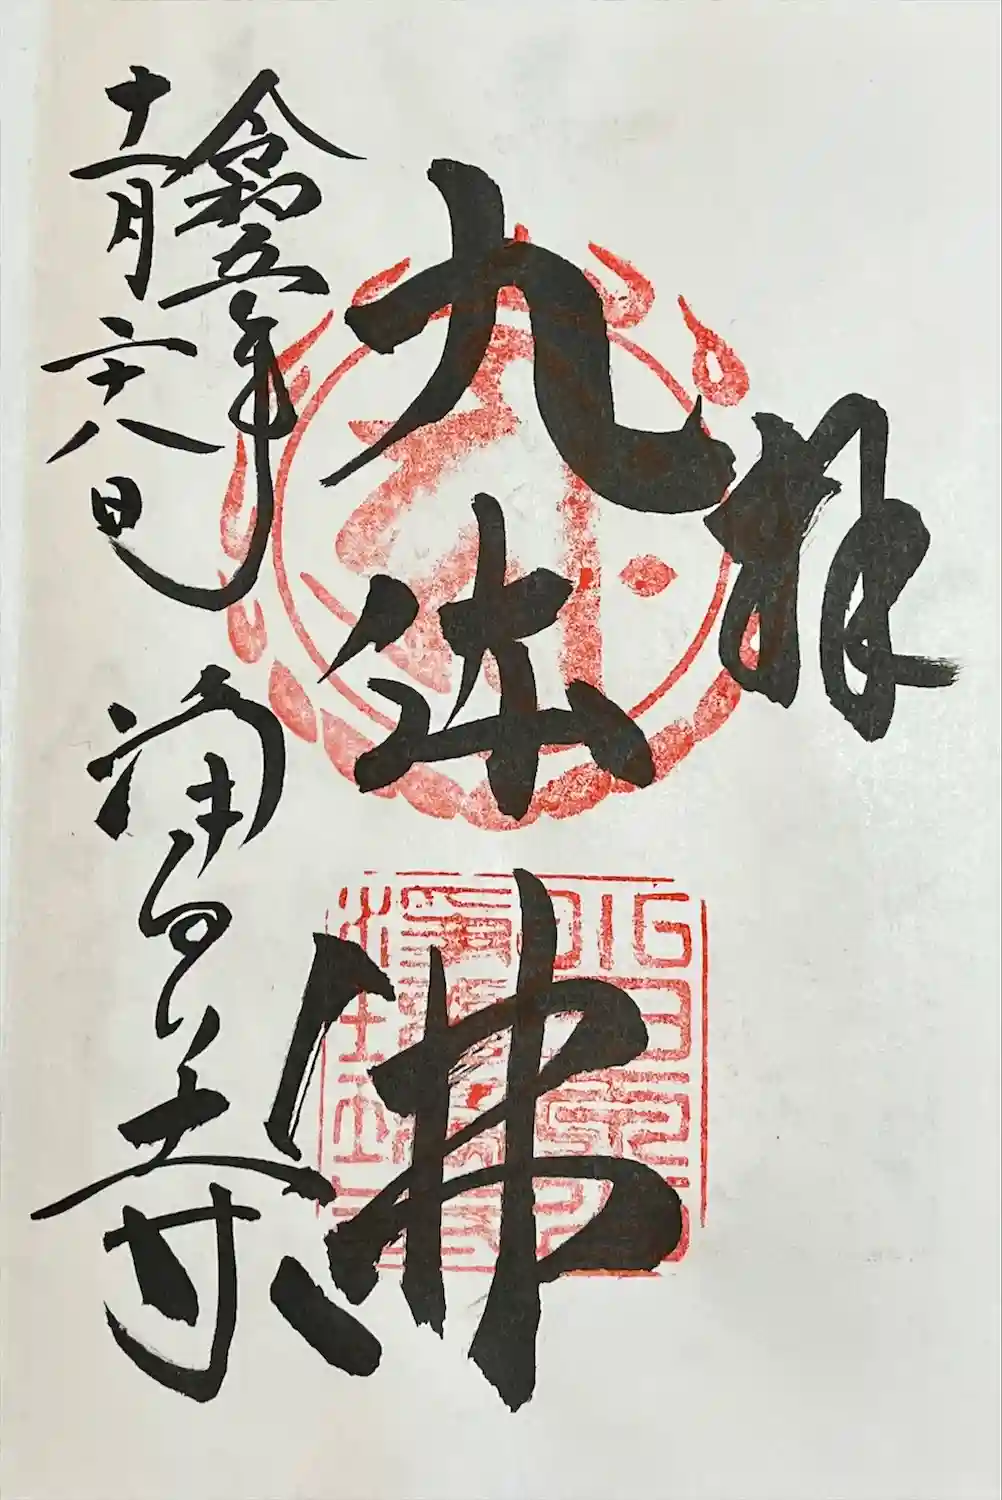 拝
九体佛
令和五年
十一月二十八日
浄瑠璃寺